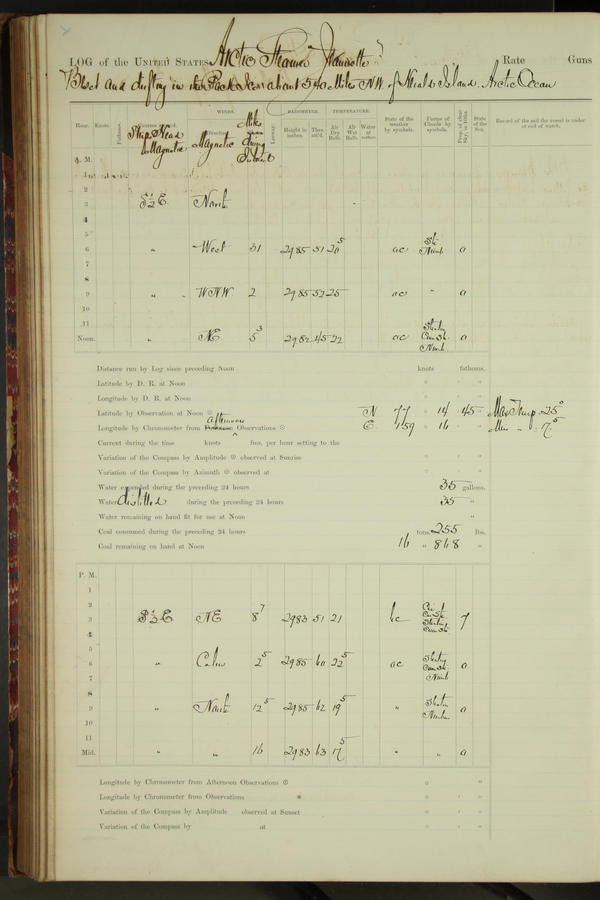 LOG of the UNITED STATES Arctic Steamer Jeannette Rate Guns
Beset and drifting in the Pack Ice about 540 Miles NW of Herald Island. Arctic Ocean
Hour. Knots. Fathoms. Ship's Head Magnetic WINDS. Magnetic Leeway. BAROMETER. Height in inches. Ther. att'd. TEMPERATURE. Air Dry Bulb. Air Wet Bulb. Water at surface. State of the weather by symbols. Forms of Clouds by symbols. Prop. of clear Sky, in 10ths. State of the Sea. Record of the sail the vessel is under at end of watch.
A. M.
1
2
3 S½E North
4
5
6 " West 31 2985 51 20⁵ oc 0
7
8
9 " " WNW 2 2985 52 25 oc " 0
10
11
Noon. " NE 5³ 2982 45 22 oc 0
Distance run by Log since preceding Noon knots fathoms.
Latitude by D. R. at Noon ° ′ ″
Longitude by D. R. at Noon ° ′ ″
Latitude by Observation at Noon N 77 ° 14 ′ 45 ″ Max Temp. 25°
Longitude by Chronometer from afternoon Observations E 159 ° 16 ′ Min " 17⁵
Current during the time knots fms. per hour setting to the
Variation of the Compass by Amplitude observed at Sunrise
Variation of the Compass by Azimuth observed at
Water expended during the preceding 24 hours 35 gallons.
Water distilled during the preceding 24 hours 35 "
Water remaining on hand fit for use at Noon "
Coal consumed during the preceding 24 hours tons, 255 lbs.
Coal remaining on hand at Noon 16 " 848 "
P. M.
1
2
3 S½E NE 8⁷ 2983 51 21 bc 7
4
5
6 " Calm 2⁵ 2985 60 22⁵ oc 0
7
8
9 " North 12⁵ 2985 62 19⁵ " 0
10
11
Mid. " " 16 2983 63 17⁵ " " 0
Longitude by Chronometer from Afternoon Observations ° ″
Longitude by Chronometer from Observations ° ′ ″
Variation of the Compass by Amplitude observed at Sunset ° ′ ″
Variation of the Compass by at ° ′ ″